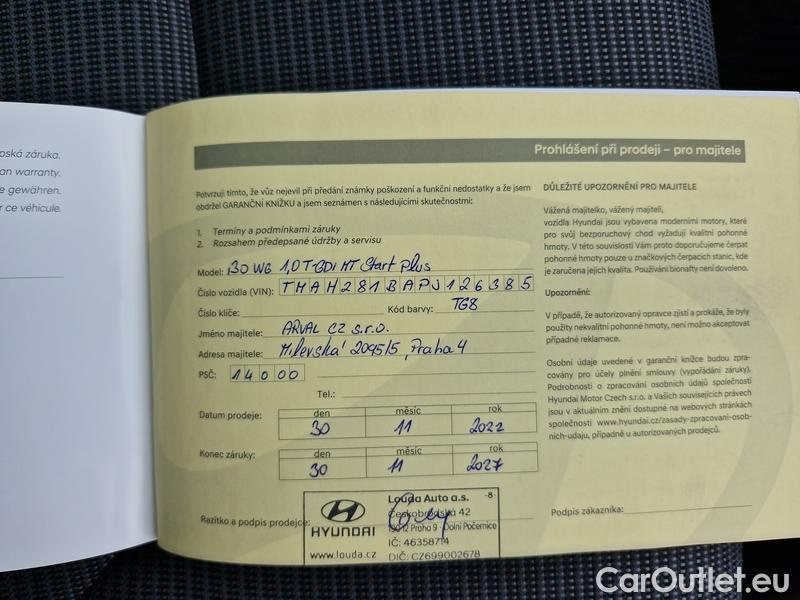 pská záruka.
an warranty.
e gewähren.
r ce véhicule.
Prohlášení při prodeji – pro majitele
Potvrzuji tímto, že vůz nejevil při předání známky poškození a funkční nedostatky a že jsem
obdržel GARANČNÍ KNÍŽKU a jsem seznámen s následujícími skutečnostmi:
1. Termíny a podmínkami záruky
2. Rozsahem předepsané údržby a servisu
Model: i30 WG 1,0 T-GDI MT Start Plus
Číslo vozidla (VIN): TMAH281BAPJ126385
Číslo klíče: Kód barvy: TG8
Jméno majitele: ARVAL CZ s.r.o.
Adresa majitele: Milevská 2095/5, Praha 4
PSČ: 14000
Tel.:
Datum prodeje: den měsíc rok
30 11 2022
Konec záruky: den měsíc rok
30 11 2027
Razítko a podpis prodejce:
HYUNDAI
www.louda.cz
Louda Auto a.s. -8-
Českobrodská 42
190 12 Praha 9 - Dolní Počernice
IČ: 46358714
DIČ: CZ699002678
DŮLEŽITÉ UPOZORNĚNÍ PRO MAJITELE
Vážená majitelko, vážený majiteli,
vozidla Hyundai jsou vybavena moderními motory, které
pro svůj bezporuchový chod vyžadují kvalitní pohonné
hmoty. V této souvislosti Vám proto doporučujeme čerpat
pohonné hmoty pouze u značkových čerpacích stanic, kde
je zaručena jejich kvalita. Používání bionafty není dovoleno.
Upozornění:
V případě, že autorizovaný opravce zjistí a prokáže, že byly
použity nekvalitní pohonné hmoty, není možno akceptovat
případné reklamace.
Osobní údaje uvedené v garanční knížce budou zpra-
covány pro účely plnění smlouvy (vypořádání záruky).
Podrobnosti o zpracování osobních údajů společností
Hyundai Motor Czech s.r.o. a Vašich souvisejících právech
jsou v aktuálním znění dostupné na webových stránkách
společnosti www.hyundai.cz/zasady-zpracovani-osob-
nich-udaju, případně u autorizovaných prodejců.
Podpis zákazníka:
CarOutlet.eu